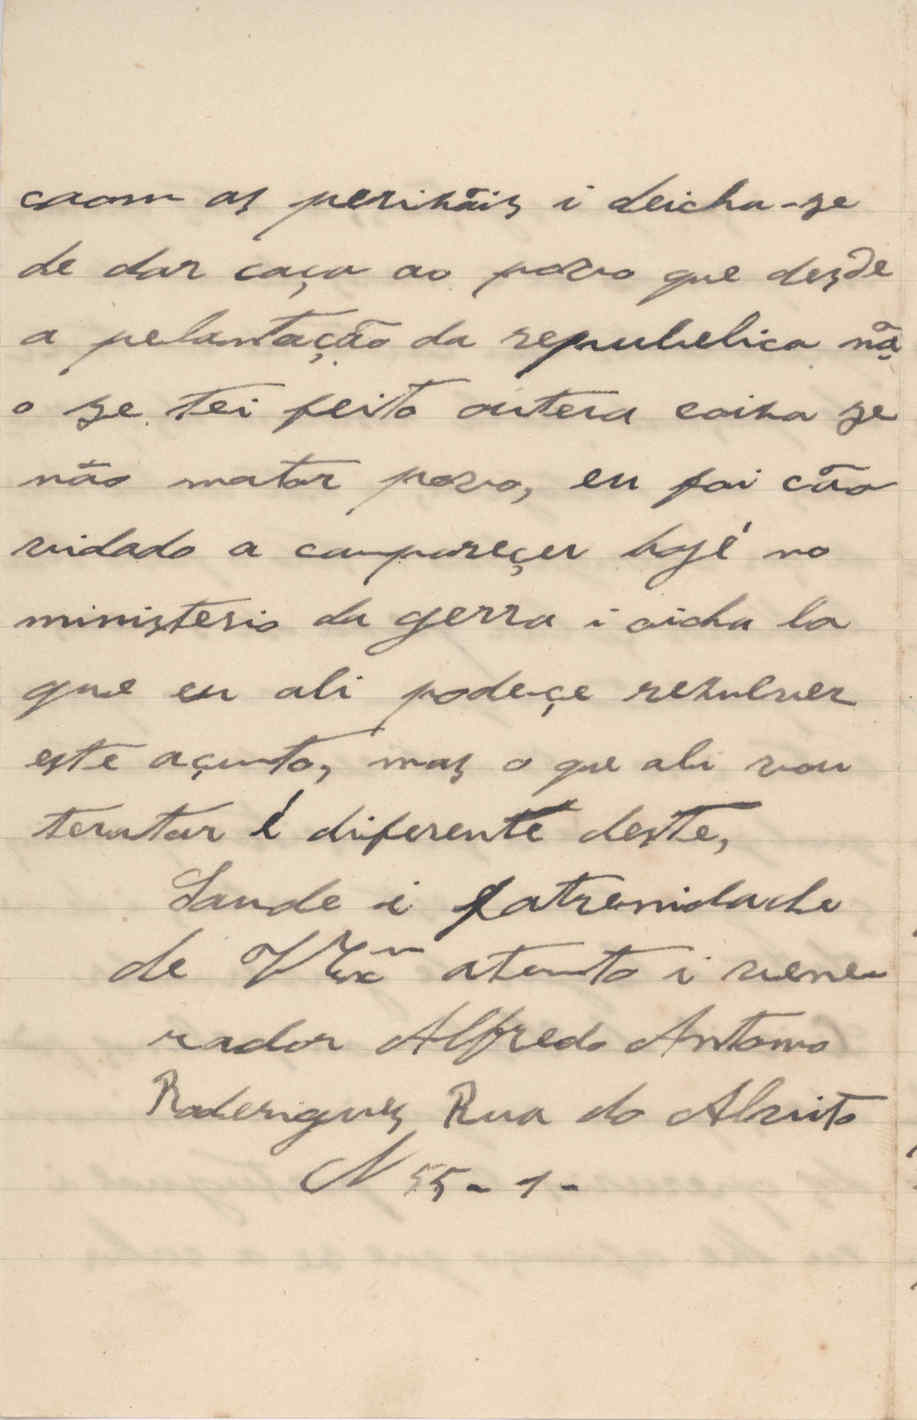 caom as perizõis i deicha-se
de dar caça ao povo que desde
a pelantação da repubelica nã
o se tei feito outera coiza se
não matar povo, eu foi cão
vidado a campareçer hojé no
ministerio da gerra i oicha la
que eu ali podeçe rezulver
este açunto, mas o que ali vou
teratar é diferente deste,
Saude i fatrenidade
de VExcª atento i vene
rador Alfredo Antonio
Roderigues Rua do Alvito
N 55-1-